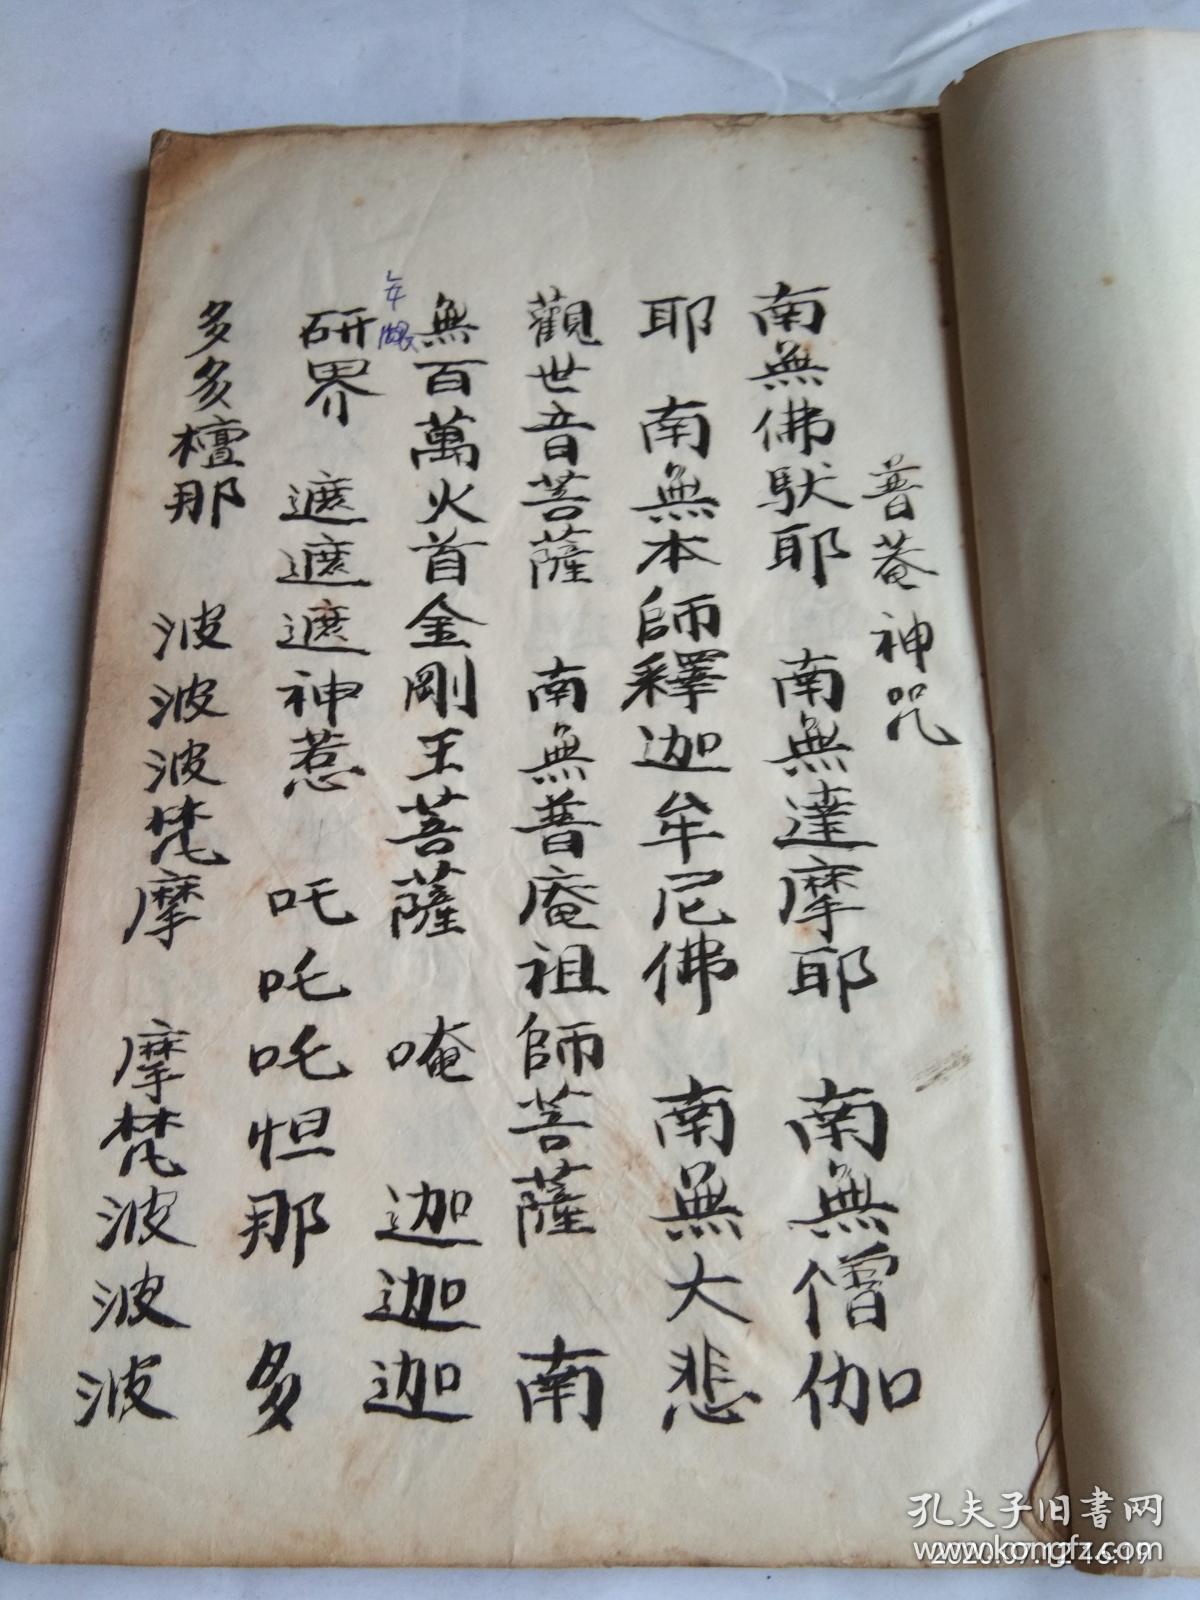 普菴神咒
南無佛馱耶 南無達摩耶 南無僧伽
耶 南無本師釋迦牟尼佛 南無大悲
觀世音菩薩 南無普庵祖師菩薩 南
無百萬火首金剛王菩薩 唵 迦迦迦
研界 遮遮遮神惹 吒吒吒怛那 多
多多檀那 波波波梵摩 摩梵波波波
孔夫子旧書网
www.kongfz.com
2020.07.12 16:19